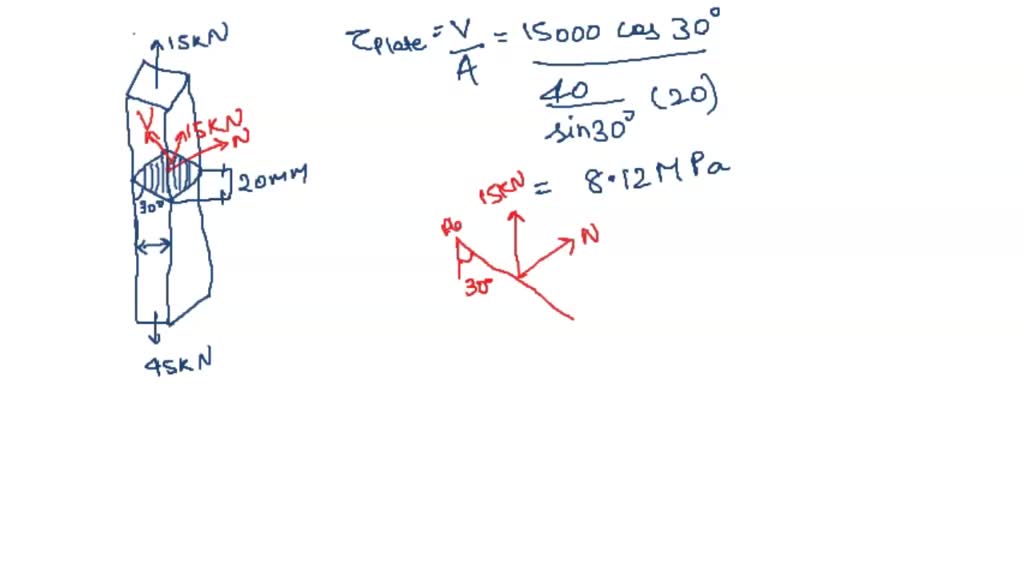 15KN
V
15KN
N
20MM
30°
45KN
τplate = V/A = 15000 cos 30° / (40/sin30° (20))
= 8.12MPa
15KN
N
30°